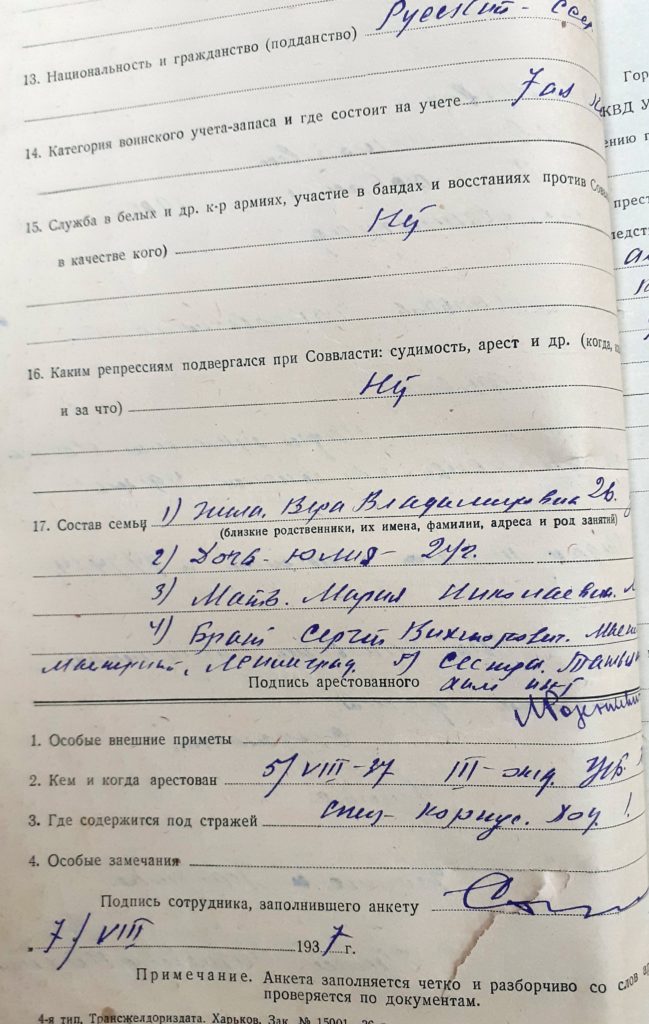 13. Национальность и гражданство (подданство) Русский - ссс
14. Категория воинского учета-запаса и где состоит на учете
15. Служба в белых и др. к-р армиях, участие в бандах и восстаниях против Совв
в качестве кого) Нет
16. Каким репрессиям подвергался при Соввласти: судимость, арест и др. (когда,
и за что) Нет
17. Состав семьи 1) Жена. Вера Владимировна
(близкие родственники, их имена, фамилии, адреса и род занятий)
2) Дочь - Юлия -
3) Мать. Мария Николаевна.
4) Брат Сергей Викторович.
Ленинград. 5) Сестра,
Подпись арестованного
1. Особые внешние приметы
2. Кем и когда арестован 5/VIII-37 III-
3. Где содержится под стражей Спец- корпус.
4. Особые замечания
Подпись сотрудника, заполнившего анкету
„7/VIII 1937 г.
Примечание. Анкета заполняется четко и разборчиво со слов
проверяется по документам.
4-я тип. Трансжелдориздата. Харьков. Зак. № 15001.
Гор
КВД У
ению г
прест
ледст